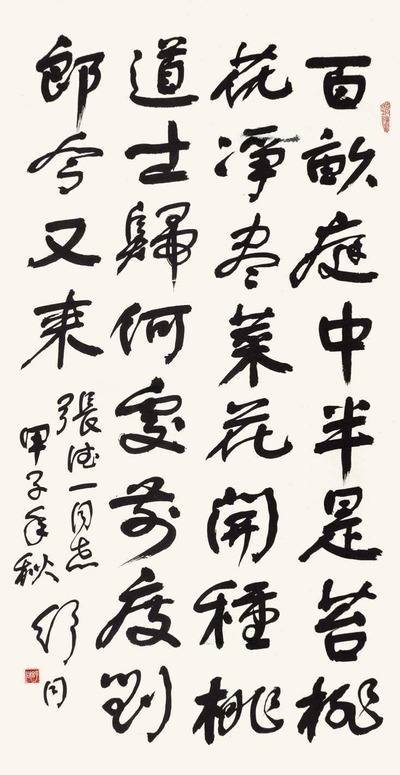 百畝庭中半是苔桃
花淨盡菜花開種桃
道士歸何處前度劉
郎今又来
張德一同志
甲子年秋 舒同